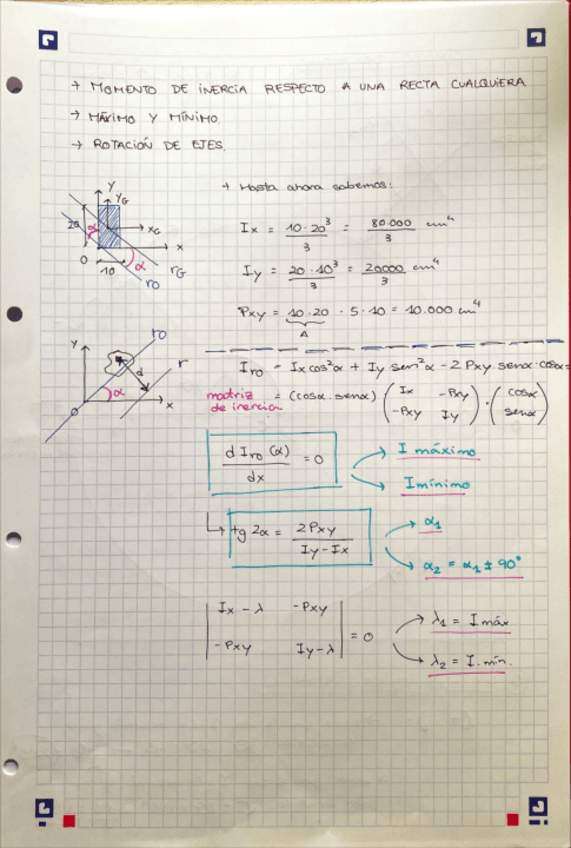 → MOMENTO DE INERCIA RESPECTO A UNA RECTA CUALQUIERA
→ MÁXIMO Y MÍNIMO.
→ ROTACIÓN DE EJES.
Y
YG
20
α
XG
x
O
10
α
rG
rO
→ Hasta ahora sabemos:
Ix = 10·20³/3 = 80.000/3 cm⁴
Iy = 20·10³/3 = 20000/3 cm⁴
Pxy = 10·20 · 5·10 = 10.000 cm⁴
A
Y
rO
r
d
α
O
x
Iro = Ix cos²α + Iy sen²α - 2 Pxy · senα · cosα =
matriz de inercia = (cosα · senα) (Ix -Pxy -Pxy Iy) · (cosα senα)
d Iro (α)/dx = 0
I máximo
I mínimo
tg 2α = 2Pxy/Iy-Ix
α1
α2 = α1 ± 90°
|Ix - λ -Pxy -Pxy Iy-λ| = 0
λ1 = I máx
λ2 = I. mín.